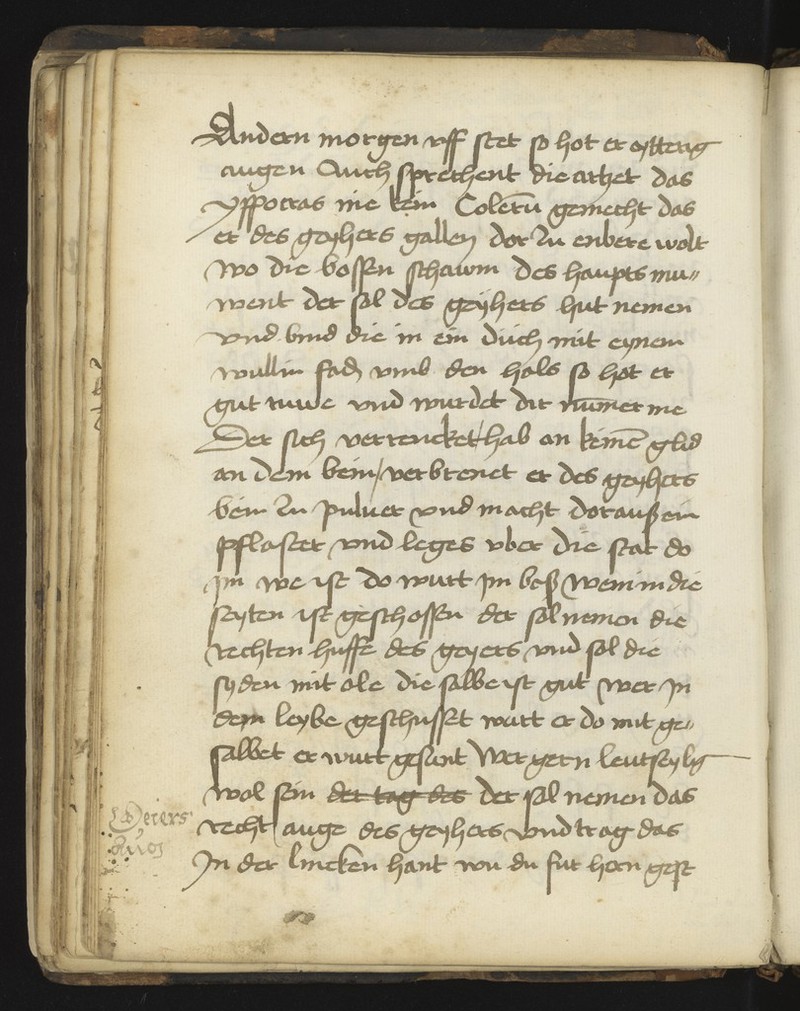 Andern morgen vff stet so hot er eytterig
augen Auch sprechent die artzet das
ypocras nie kein Colerū gemecht das
er des geyhers gallen dor zu enbere wolt
Wo die bossen schawm des haupts mu„
went der sol des geyhers hut nemen
vnd bind die in ein düch mit eynem
wullin fadē vmb den hals so hot er
gut ruwe vnd wurdet dir nūmer me
Der sich verrencket hab an keinē glid
an dem bein / verbrenet er des geyhers
bein zu puluer vnd macht dorauß ein
pflaster vnd leges vber die stat do
im we ist do wurt im baß Wem in die
seyten ist geschossen der sol nemen die
rechten huffe des geyers vnd sol die
syden mit ole die salbe ist gut Wer in
dem leybe geschusset wurt er do mit ge„
salbet er wurt gesunt Wer gern leutseylig
wol sein der tag des der sol nemen das
Geiers
recht auge des geyhers vnd trag das
Aug
In der lincken hant wu du fur hern gest